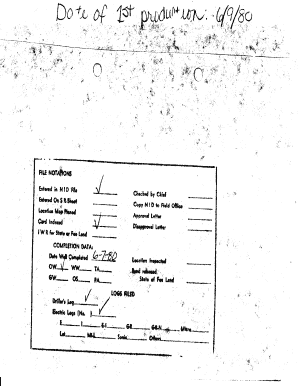 Date of 1st production: 6/9/80
FILE NOTATIONS
Entered in NID File ✓ Checked by Chief
Entered On S R Sheet Copy NID to Field Office
Location Map Pinned Approval Letter
Card Indexed ✓ Disapproval Letter
I W R for State or Fee Land
COMPLETION DATA:
Date Well Completed 6-7-80 Location Inspected
OW ✓ WW TA Bond released
GW OS PA State of Fee Land
LOGS FILED
Driller's Log ✓
Electric Logs (No. ) ✓
E I GR GR-N Micro
Lat Sonic Others